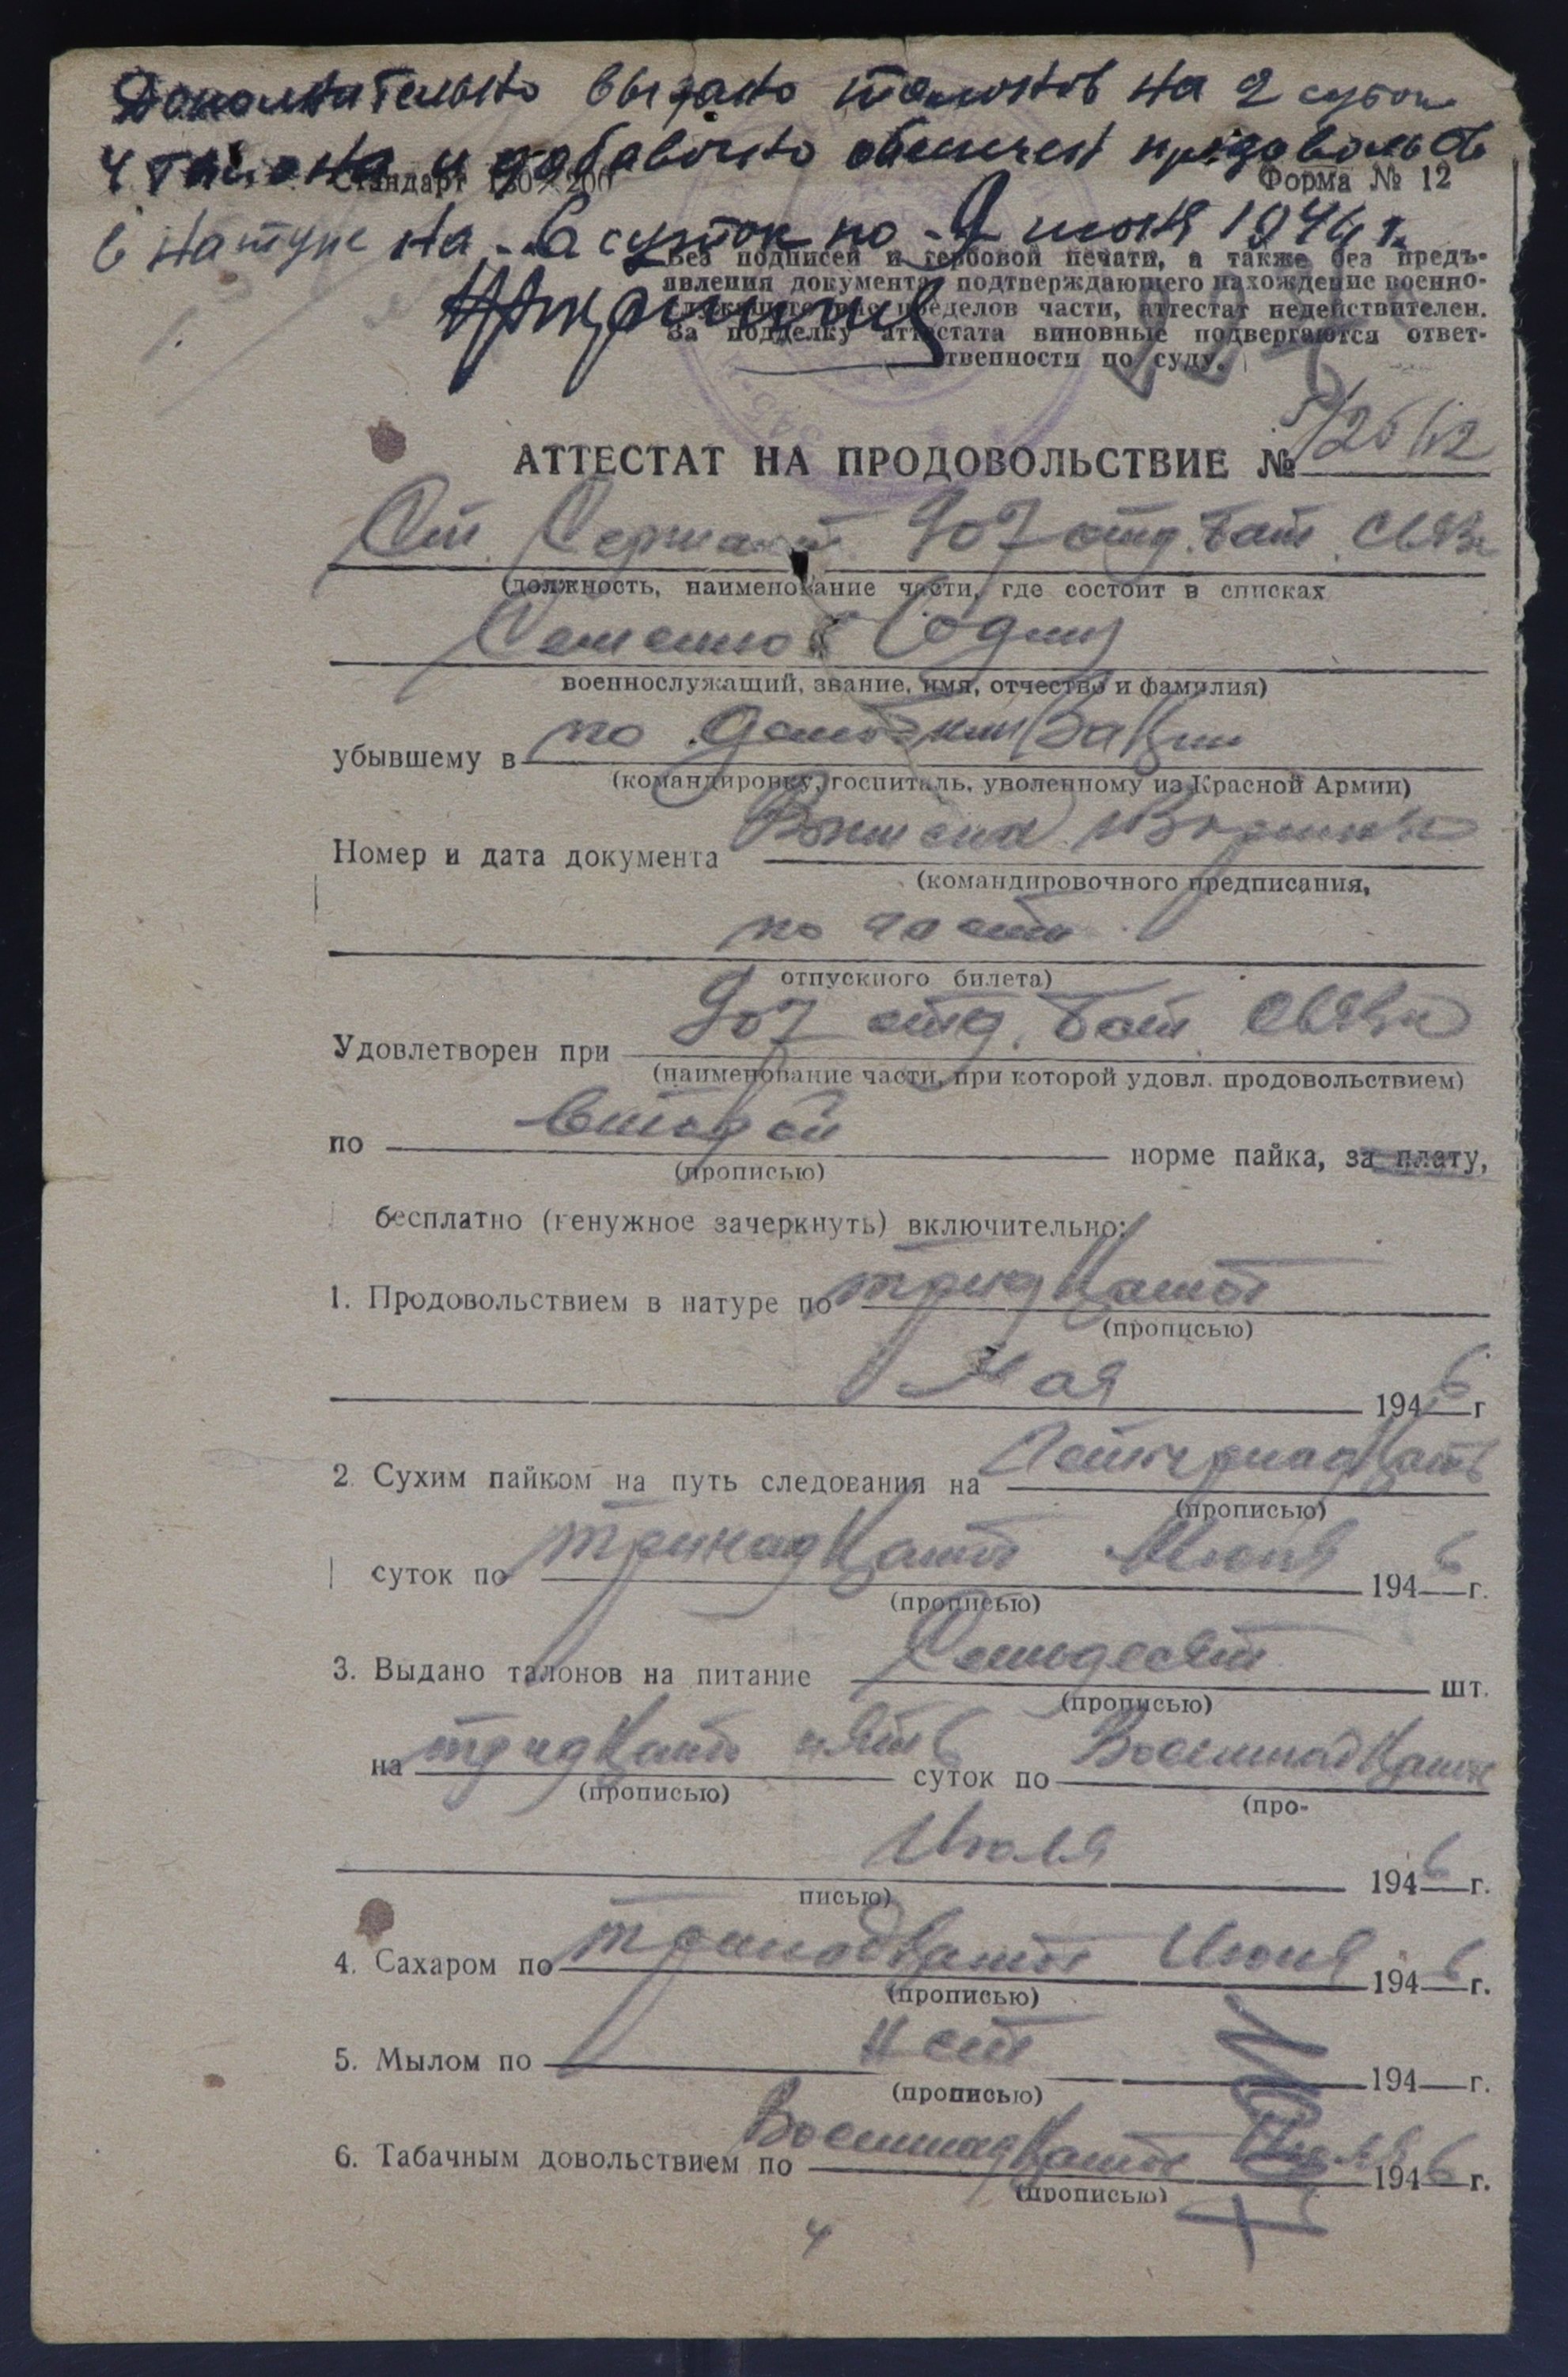 Дополнительно выдано талонов на 2 суток
4 талона и добавочно обеспечен продовольств
в натуре на суток по 9 июня 1946 г.
Стандарт 130×200 Форма № 12
Без подписей и гербовой печати, а также без предъ-
явления документа, подтверждающего нахождение военно-
служащего вне пределов части, аттестат недействителен.
За подделку аттестата виновные подвергаются ответ-
ственности по суду.
АТТЕСТАТ НА ПРОДОВОЛЬСТВИЕ №
Ст. Сержант 907 отд. бат. связи
(должность, наименование части, где состоит в списках
Семенов
военнослужащий, звание, имя, отчество и фамилия)
убывшему в по демобилизации
(командировку, госпиталь, уволенному из Красной Армии)
Номер и дата документа
(командировочного предписания,
по части
отпускного билета)
Удовлетворен при 907 отд. бат. связи
(наименование части, при которой удовл. продовольствием)
по второй норме пайка, за плату,
(прописью)
бесплатно (ненужное зачеркнуть) включительно:
1. Продовольствием в натуре по тридцатое
(прописью)
Мая 1946 г
2. Сухим пайком на путь следования на четырнадцать
(прописью)
суток по тринадцатое Июня 1946 г.
(прописью)
3. Выдано талонов на питание Семьдесят шт.
(прописью)
на тридцать пять суток по Восемнадцатое
(прописью) (про-
Июля 1946 г.
писью)
4. Сахаром по тринадцатое Июня 1946 г.
(прописью)
5. Мылом по нет 194 г.
(прописью)
6. Табачным довольствием по Восемнадцатое Июля 1946 г.
(прописью)
4